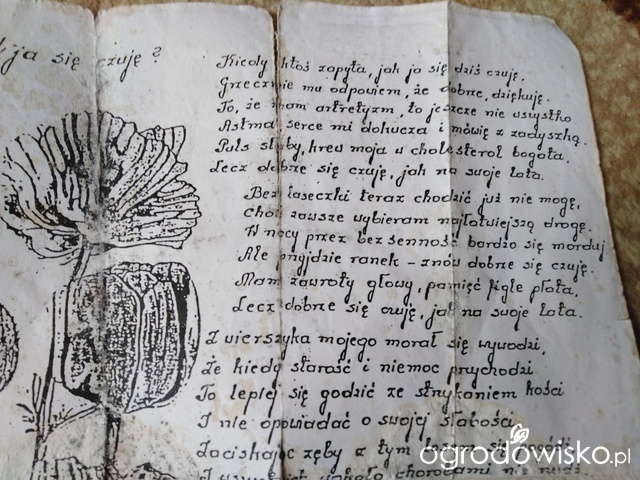 ja się czuję?
Kiedy ktoś zapyta, jak ja się dziś czuję,
Grzecznie mu odpowiem, że dobrze, dziękuję.
To, że mam artretyzm, to jeszcze nie wszystko
Astma, serce mi dokucza i mówię z zadyszką.
Puls słaby, krew moja w cholesterol bogata,
Lecz dobrze się czuję, jak na swoje lata.
Bez laseczki teraz chodzić już nie mogę,
Choć zawsze wybieram najłatwiejszą drogę.
W nocy przez bezsenność bardzo się morduję
Ale przyjdzie ranek - znów dobrze się czuję.
Mam zawroty głowy, pamięć figle płata,
Lecz dobrze się czuję, jak na swoje lata.
Z wierszyka mojego morał się wywodzi,
Że kiedy starość i niemoc przychodzi
To lepiej się godzić ze strzykaniem kości
I nie opowiadać o swojej słabości
Zaciskając zęby z tym
chorobami nie
ogrodowisko.pl